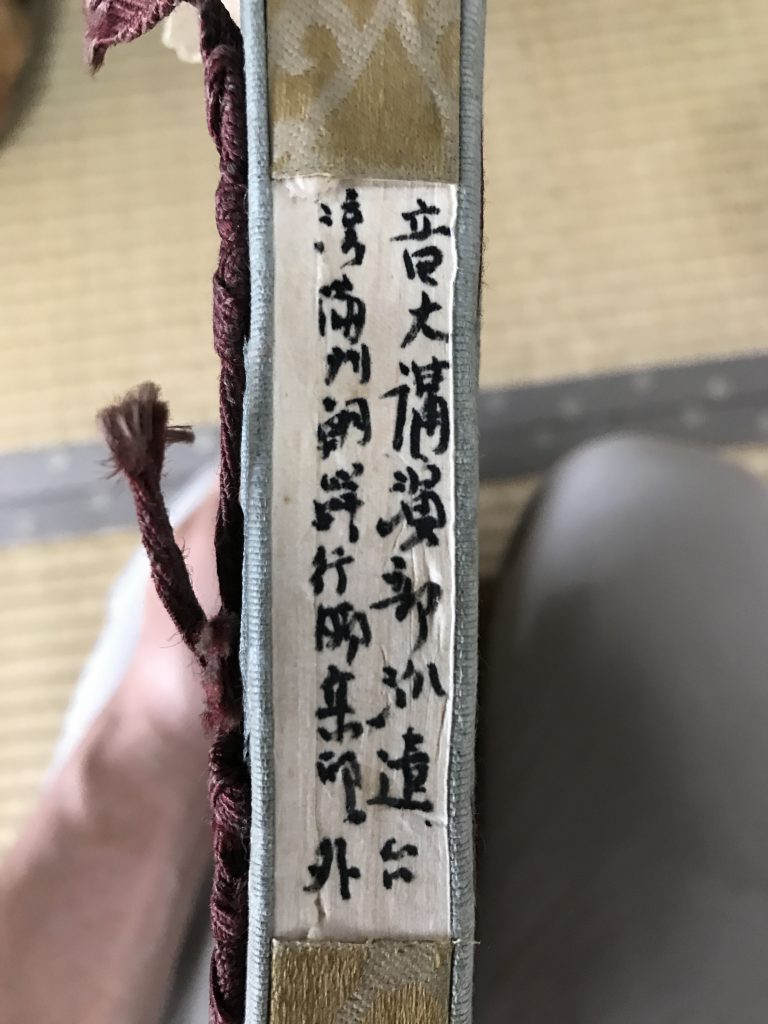 音大講演部派遣台
湾満州朝鮮行脚集印外